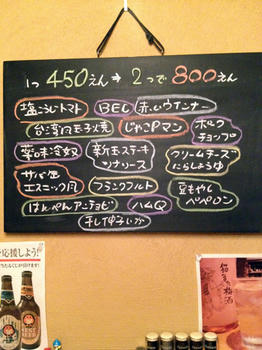 1つ 450えん → 2つで 800えん
塩こうじトマト
BEL
赤いウインナー
台湾風玉子焼
じゃこPマン
ポーク
チョップ
薬味冷奴
新玉ステーキ
ツナソース
クリームチーズ
にらしょうゆ
サバ缶
エスニック風
フランクフルト
豆もやし
ペペロン
はんぺんアンチョビ
ハムQ
干し伊子いか
応援しよう!
梅酒